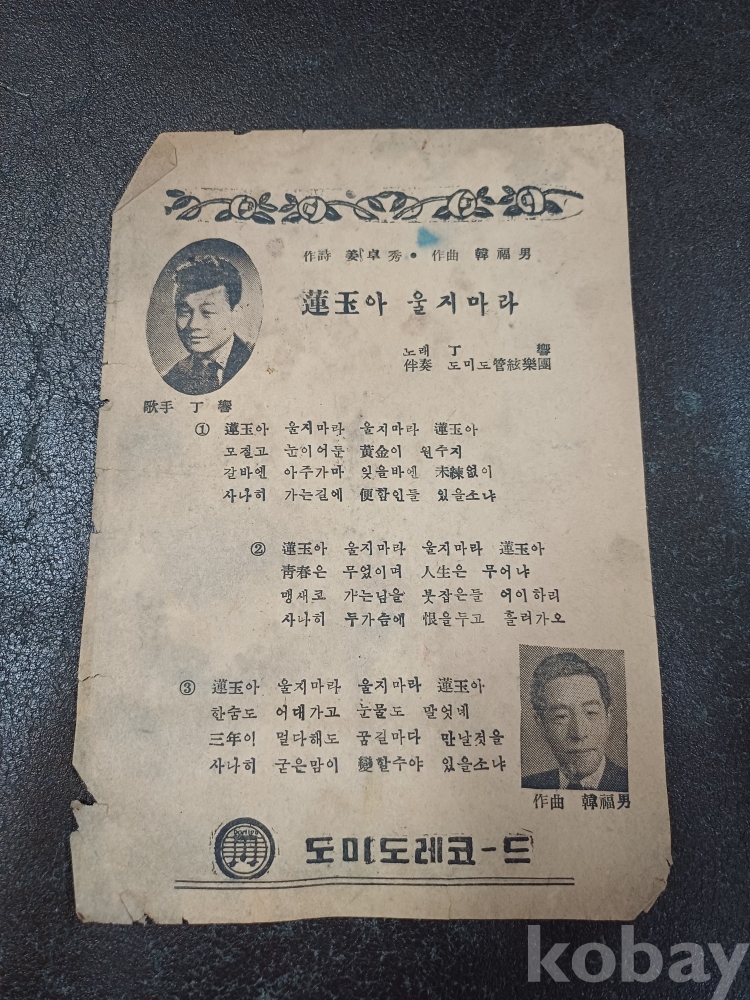 作詩 姜卓秀 • 作曲 韓福男
蓮玉아 울지마라
노래 丁 響
伴奏 도미도管絃樂團
歌手 丁響
① 蓮玉아 울지마라 울지마라 蓮玉아
모질고 눈이어둔 黃金이 원수지
갈바엔 아주가마 잊을바엔 未練없이
사나히 가는길에 便함인들 있을소냐
② 蓮玉아 울지마라 울지마라 蓮玉아
靑春은 무었이며 人生은 무어냐
맹새코 가는님을 붓잡은들 어이하리
사나히 두가슴에 恨을두고 흘러가오
③ 蓮玉아 울지마라 울지마라 蓮玉아
한숨도 어대가고 눈물도 말엇네
三年이 멀다해도 꿈길마다 만날것을
사나히 굳은맘이 變할수야 있을소냐
作曲 韓福男
도미도레코-드
kobay